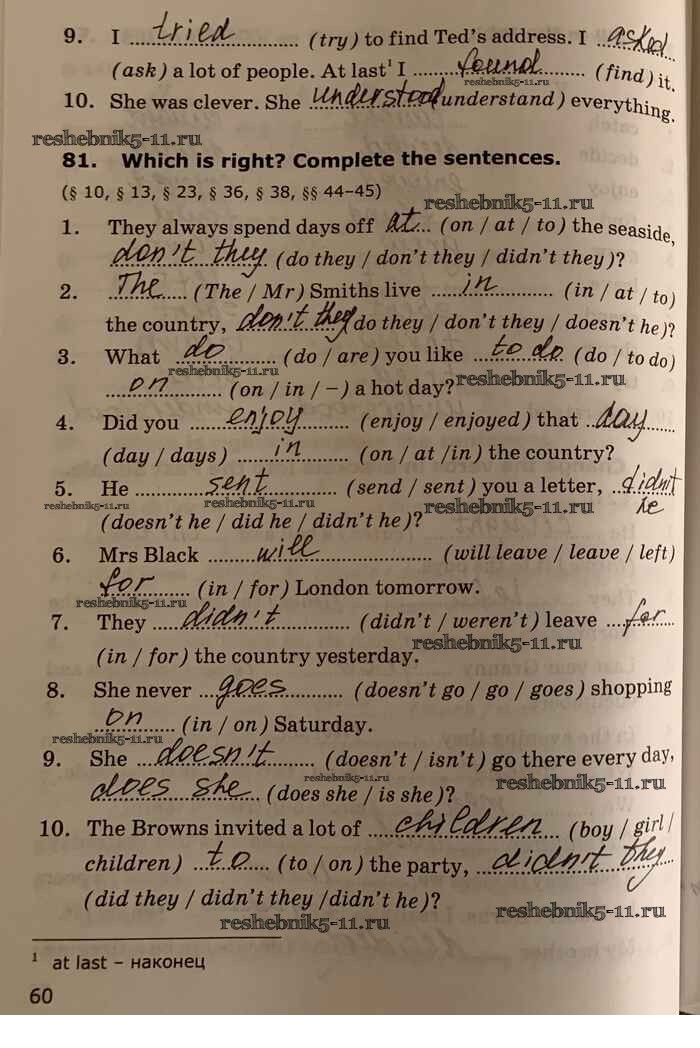 9. I tried (try) to find Ted's address. I asked
(ask) a lot of people. At last¹ I found (find) it.
reshebnik5-11.ru
10. She was clever. She understood (understand) everything.
reshebnik5-11.ru
81. Which is right? Complete the sentences.
(§ 10, § 13, § 23, § 36, § 38, §§ 44–45)
reshebnik5-11.ru
1. They always spend days off at (on / at / to) the seaside,
don't they (do they / don't they / didn't they)?
2. The (The / Mr) Smiths live in (in / at / to)
the country, don't they (do they / don't they / doesn't he)?
3. What do (do / are) you like to do (do / to do)
reshebnik5-11.ru
on (on / in / –) a hot day?
reshebnik5-11.ru
4. Did you enjoy (enjoy / enjoyed) that day
(day / days) in (on / at /in) the country?
5. He sent (send / sent) you a letter, didn't he
reshebnik5-11.ru reshebnik5-11.ru reshebnik5-11.ru
(doesn't he / did he / didn't he)?
6. Mrs Black will (will leave / leave / left)
for (in / for) London tomorrow.
reshebnik5-11.ru
7. They didn't (didn't / weren't) leave for
reshebnik5-11.ru
(in / for) the country yesterday.
8. She never goes (doesn't go / go / goes) shopping
on (in / on) Saturday.
reshebnik5-11.ru
9. She doesn't (doesn't / isn't) go there every day,
reshebnik5-11.ru reshebnik5-11.ru
does she (does she / is she)?
10. The Browns invited a lot of children (boy / girl /
children) to (to / on) the party, didn't they
(did they / didn't they /didn't he)?
reshebnik5-11.ru reshebnik5-11.ru
¹ at last – наконец
60